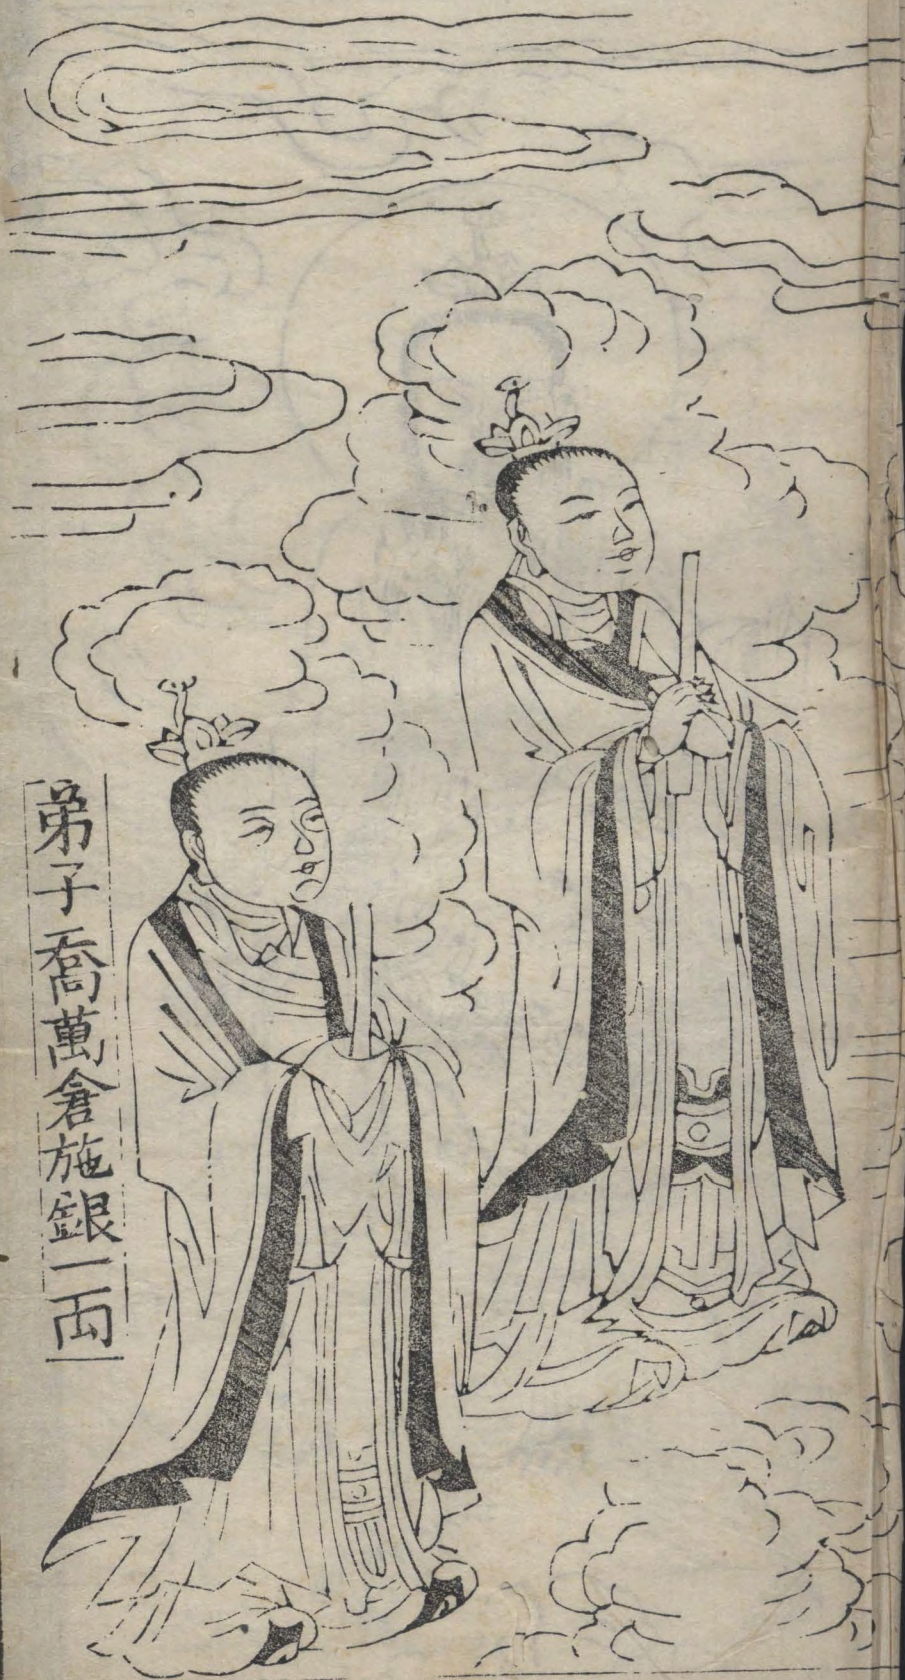 弟子喬萬倉施銀一両